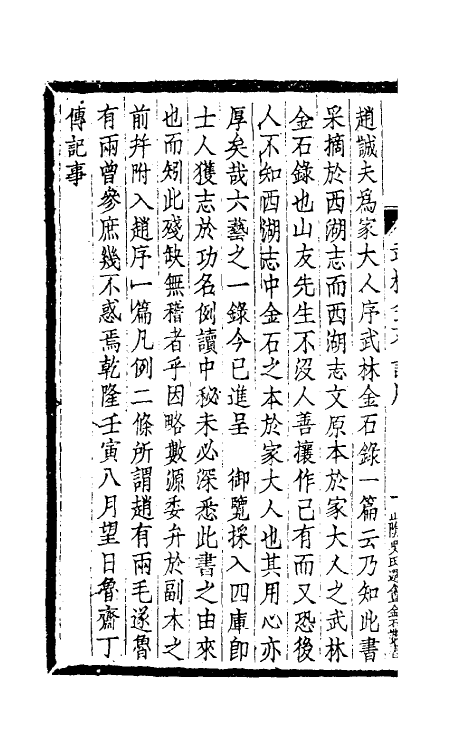 趙誠夫爲家大人序武林金石錄一篇云乃知此書
采摘於西湖志而西湖志文原本於家大人之武林
金石錄也山友先生不沒人善攘作己有而又恐後
人不知西湖志中金石之本於家大人也其用心亦
厚矣哉六藝之一錄今已進呈　御覽採入四庫卽
士人獲志於功名例讀中秘未必深悉此書之由來
也而矧此殘缺無稽者乎因略數源委弁於副木之
前幷附入趙序一篇凡例二條所謂趙有兩毛遂魯
有兩曾參庶幾不惑焉乾隆壬寅八月望日魯齋丁
傳記事